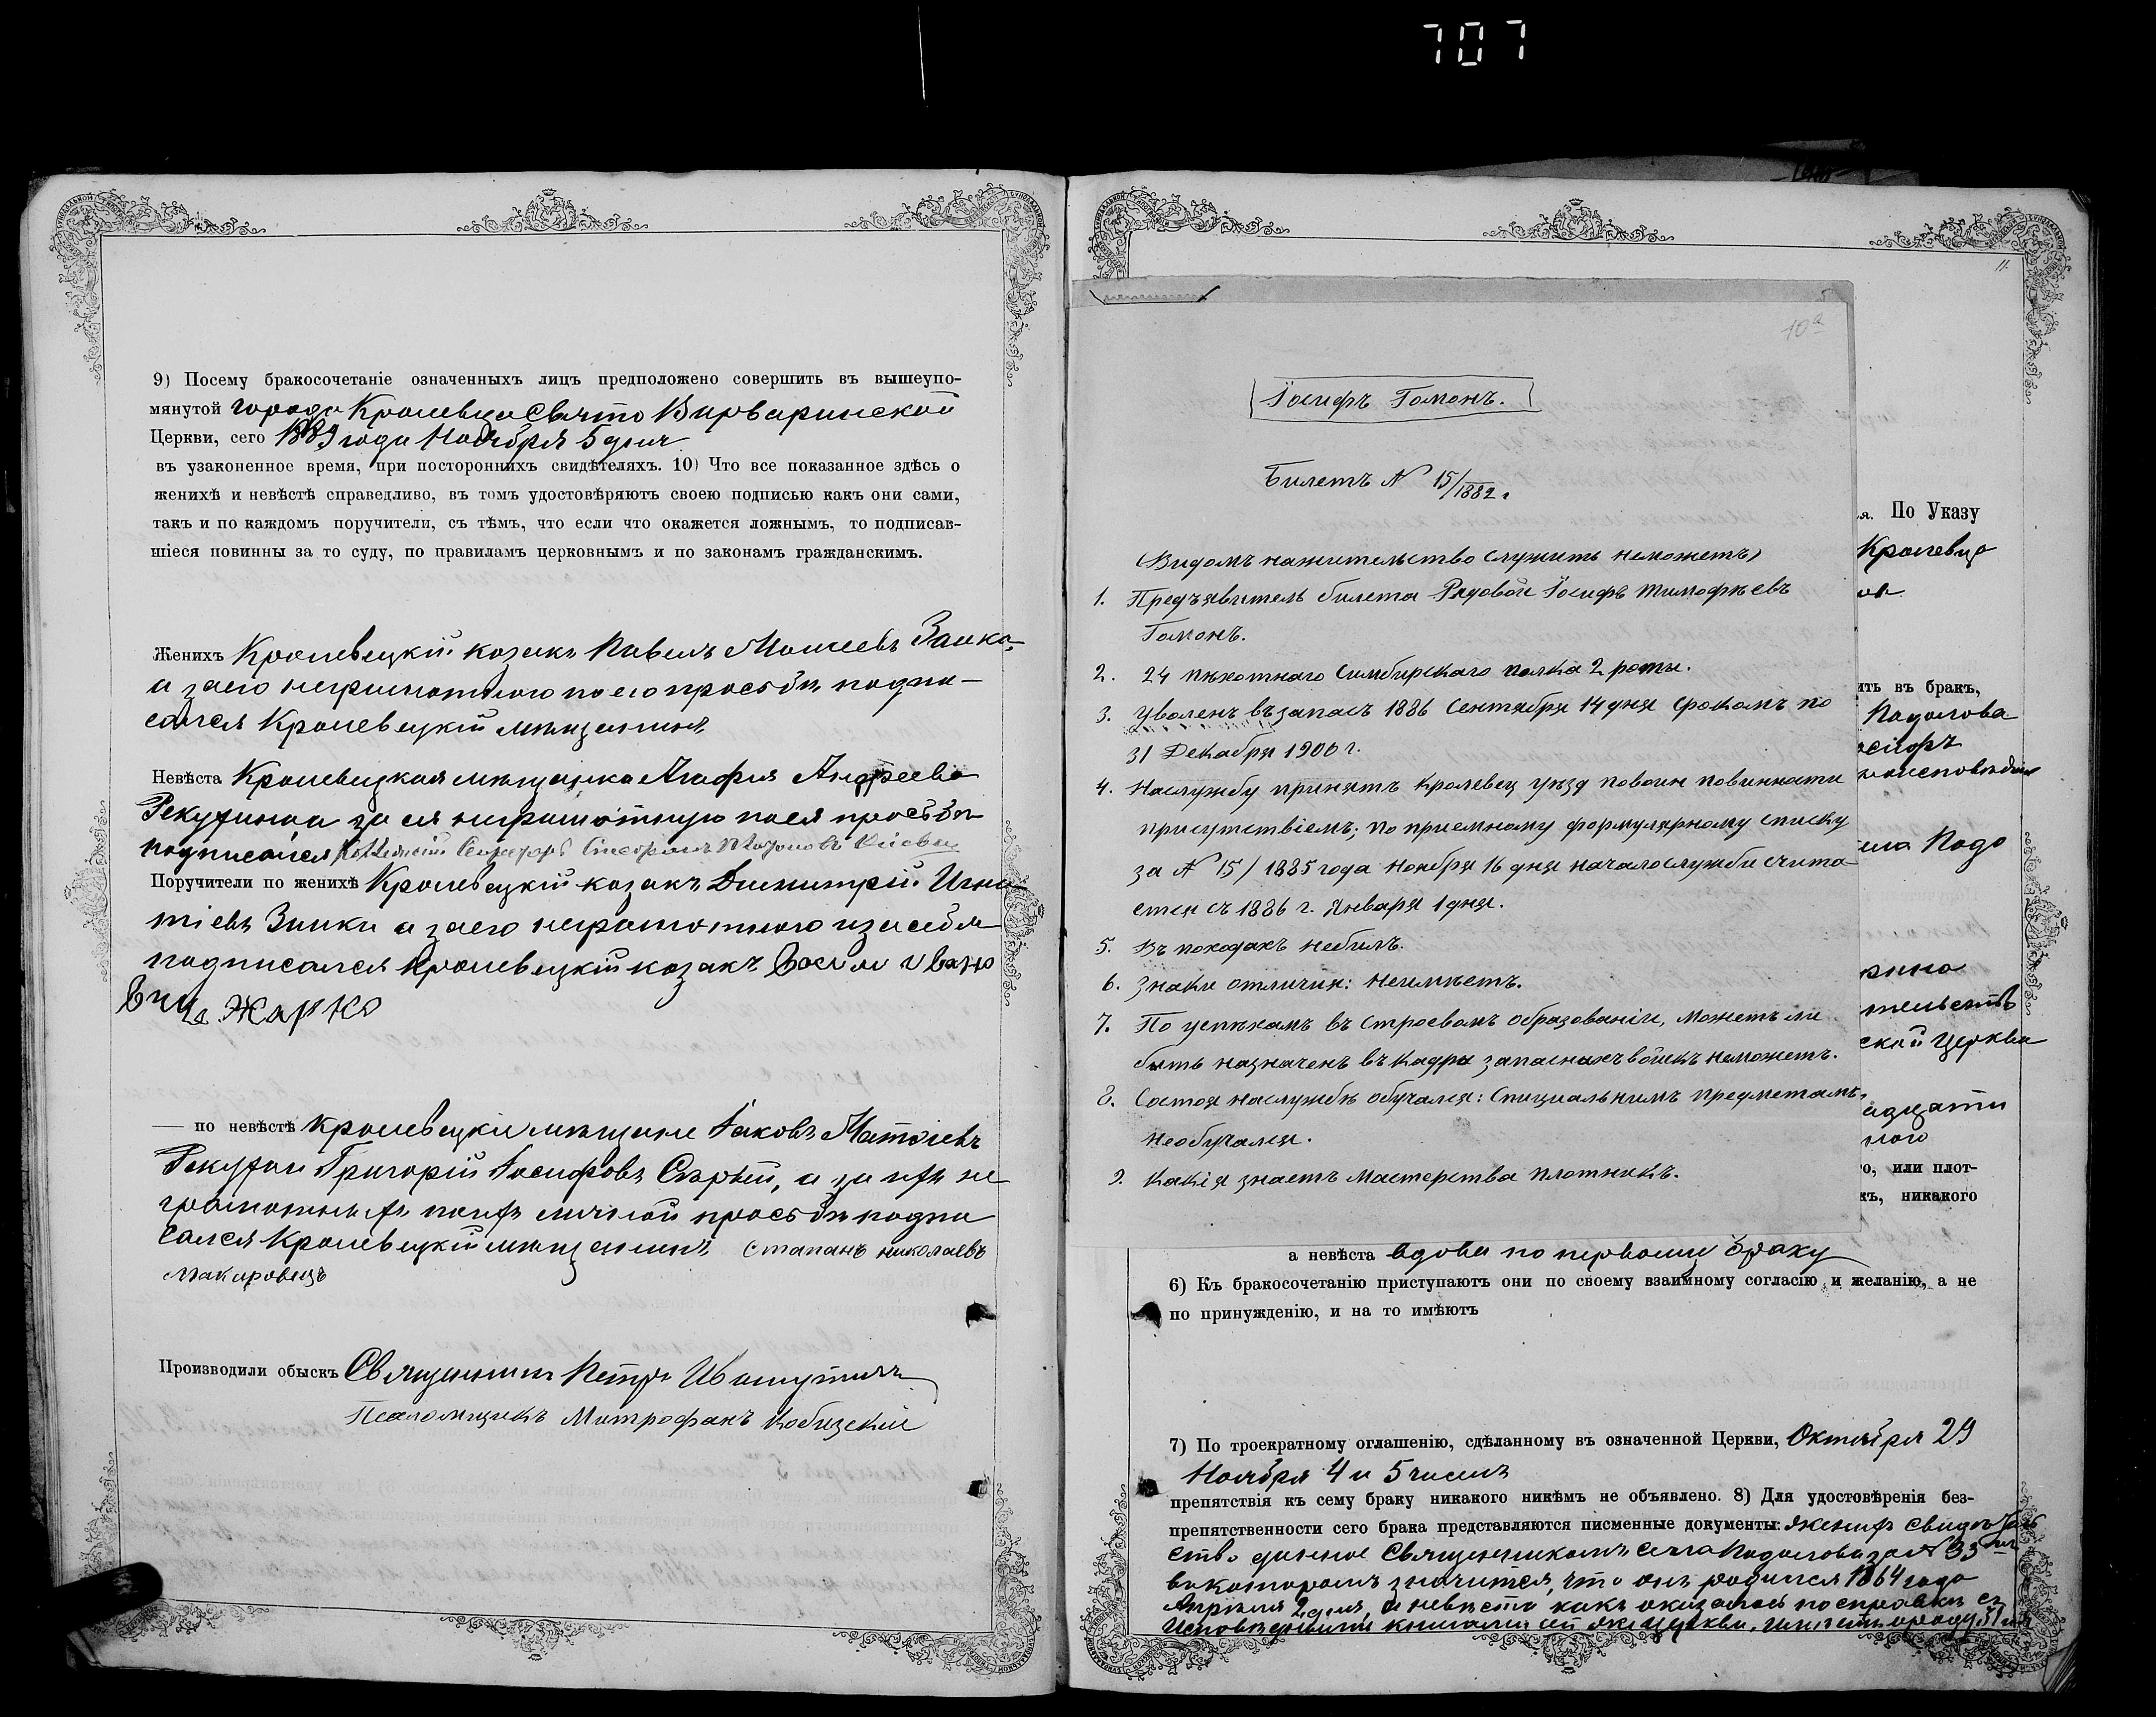 707
9) Посему бракосочетаніе означенныхъ лицъ предположено совершить въ вышеупо-
мянутой города Кролевца Свято Варваринской
Церкви, сего 1889 года Ноября 5 дня
въ узаконенное время, при постороннихъ свидѣтеляхъ. 10) Что все показанное здѣсь о
женихѣ и невѣстѣ справедливо, въ томъ удостовѣряютъ своею подписью какъ они сами,
такъ и по каждомъ поручители, съ тѣмъ, что если что окажется ложнымъ, то подписав-
шіеся повинны за то суду, по правиламъ церковнымъ и по законамъ гражданскимъ.
Женихъ Кролевецкій козакъ Павелъ Моисеевъ Заика
а за его неграмотного по его прозьбѣ подпи-
сался Кролевецкій мѣщанинъ
Невѣста Кролевецкая мѣщанка Агафія Андреева
за ея неграмотную по ея прозьбѣ
подписался
Поручители по женихѣ Кролевецкій козакъ Димитрій Игна
тіевъ Заика а за его неграмотного и за себя
подписался Кролевецкій козакъ
Жарко
— по невѣстѣ Кролевецкіе мѣщане Іаковъ
Григорій Іосифовъ а за ихъ не
грамотныхъ по ихъ личной прозьбѣ подпи
сался Кролевецкій мѣщанинъ Стапанъ Николаевъ
Макаровецъ
Производили обыскъ Священникъ Петръ
Псаломщикъ Митрофанъ
11.
10а
Іосифъ Гомонъ.
Билетъ № 15/1882 г.
(Видомъ нажительство служить неможетъ)
1. Предъявитель билета Рядовой Іосифъ Тимофѣевъ
Гомонъ.
2. 24 пѣхотнаго Симбирскаго полка 2 роты.
3. Уволенъ въ запасъ 1886 Сентября 14 дня срокомъ по
31 Декабря 1900 г.
4. Наслужбу принятъ Кролевец уѣзд повоин повинности
присутствіемъ; по приемному формулярному списку
за № 15/1885 года Ноября 16 дня начало службы счита
ется съ 1886 г. Января 1 дня.
5. Въ походахъ небылъ.
6. Знаки отличия: Неимѣетъ.
7. По успѣхамъ въ строевомъ образованіи, можетъ ли
быть назначенъ въ кадры запасныхъ войскъ неможетъ.
8. Состоя наслужбѣ обучался: Специальнымъ предметамъ,
необучался.
9. Какія знаетъ мастерства плотникъ.
я. По Указу
Кролевца
ить въ бракъ,
Подолова
осифъ
ила Подо
рина
ской Церкви
адцати
о, или плот-
хъ, никакого
а невѣста вдова по первому браку
6) Къ бракосочетанію приступаютъ они по своему взаимному согласію и желанію, а не
по принужденію, и на то имѣютъ
7) По троекратному оглашенію, сдѣланному въ означенной Церкви, Октября 29
Ноября 4 и 5 чиселъ
препятствія къ сему браку никакого никѣмъ не объявлено. 8) Для удостовѣренія без-
препятственности сего брака представляются писменные документы: Женихъ свидѣтель
ство данное Священникомъ села Подолова за № 33
въ которомъ значится, что онъ родился 1864 года
Апрѣля 2 дня, а невѣста какъ оказалось по справкѣ съ
Исповѣдными книгами сей же церкви, имѣетъ отроду 31